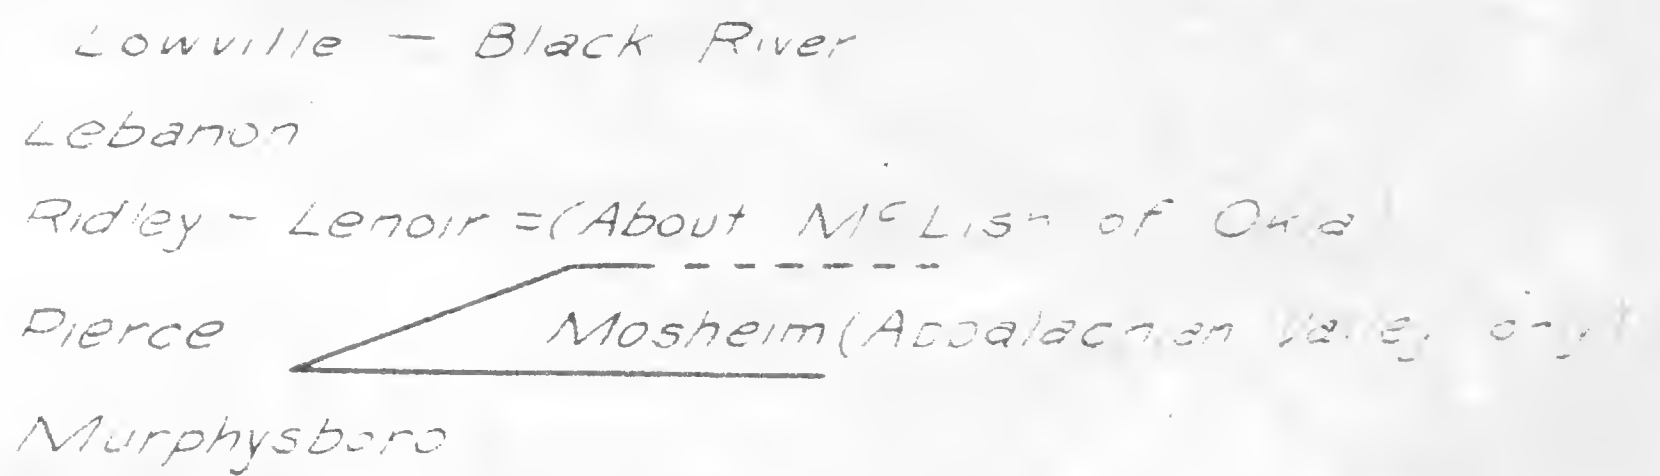 Lowville — Black River
Lebanon
Ridley - Lenoir = (About McLish of Okla)
Pierce Mosheim (Appalachian Valley only)
Murphysboro